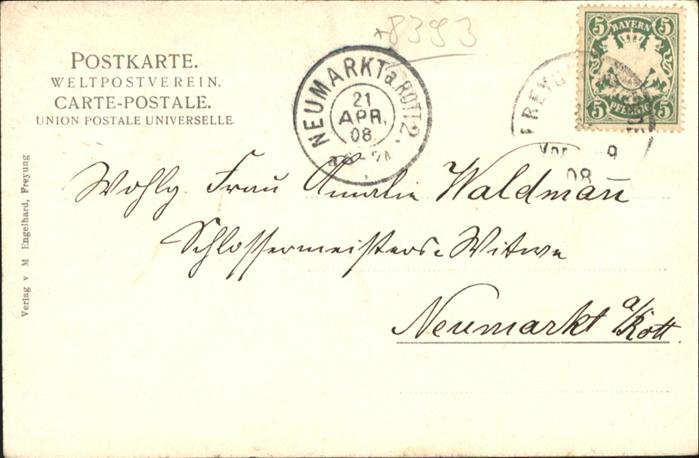 8393
5 BAYERN 5
5 PFENNIG 5
POSTKARTE.
WELTPOSTVEREIN.
CARTE-POSTALE.
UNION POSTALE UNIVERSELLE
NEUMARKT a. ROTT 2.
21
APR.
08
FREYU
Vor 9
08
Wohlg. Frau Amalie Waldmañ
Schlossermeisters-Witwe
Neumarkt a/Rott.
Verlag v M Engelhard, Freyung